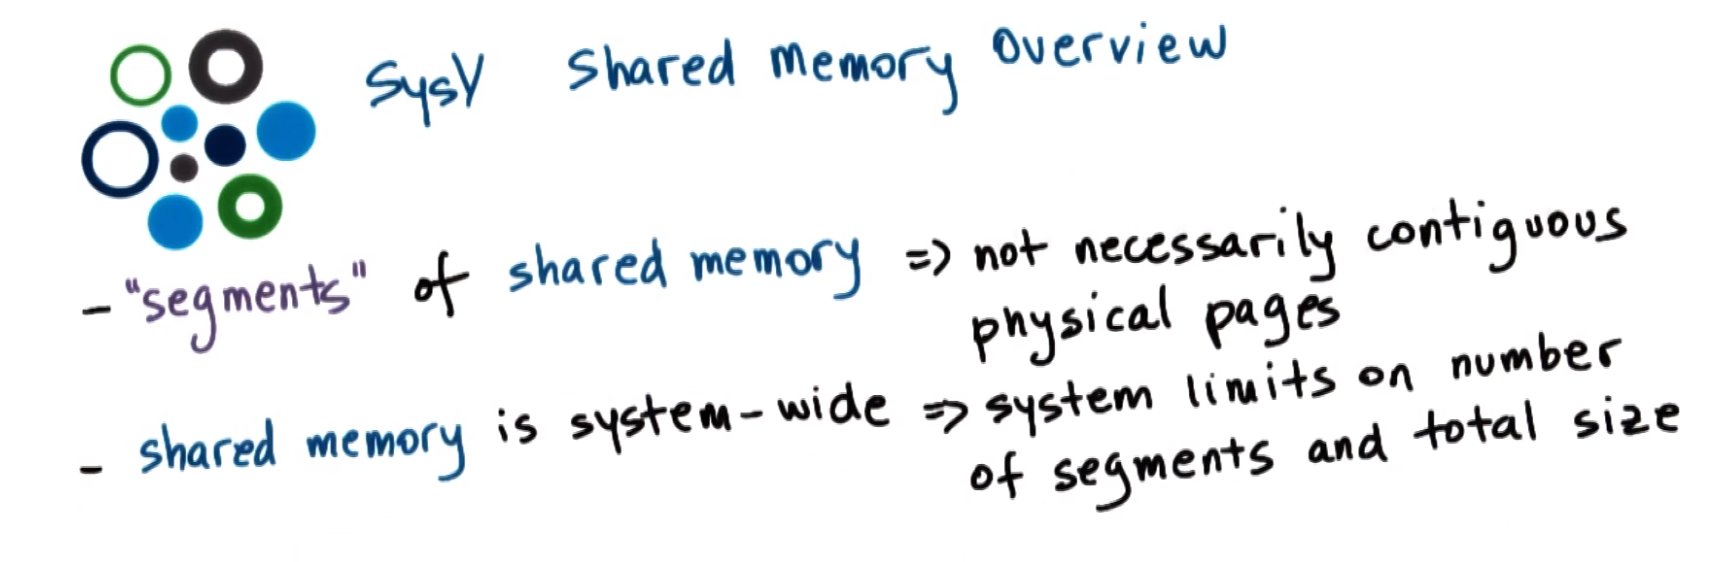 SysV shared memory overview
- "segments" of shared memory => not necessarily contiguous
physical pages
- shared memory is system-wide => system limits on number
of segments and total size